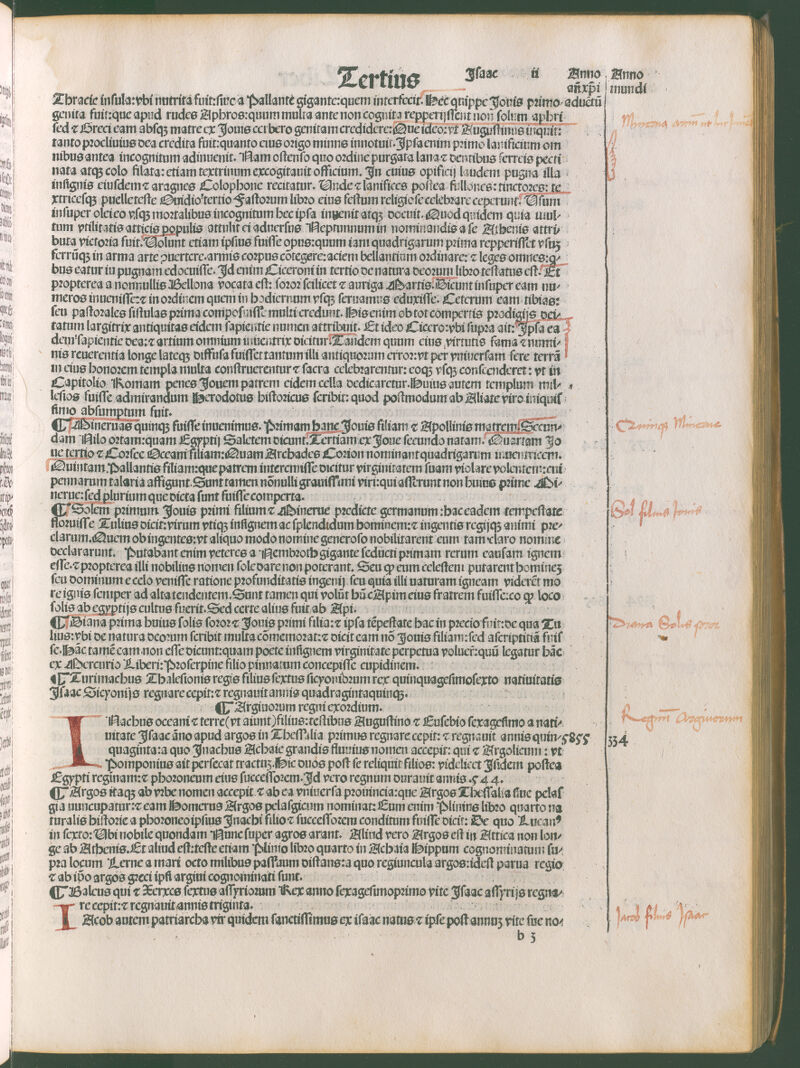 Tertius Isaac ii Anno Anno
añ xp̄i mundi
Thracie insula: vbi nutrita fuit: siue a Pallante gigante: quem interfecit. Hec quippe Jouis primo aduētū
genita fuit: que apud rudes Aphros: quum multa ante non cognita repperijssent non solum aphri
sed ⁊ Greci eam absq̃ matre ex Jouis cerebro genitam credidere: Que ideo: vt Augustinus inquit:
tanto procliuius dea credita fuit: quanto eius origo minus innotuit. Ipsa enim primo lanificium om
nibus antea incognitum adinuenit. Nam ostenso quo ordine purgata lana ⁊ dentibus ferreis pecti
nata atq̃ colo filata: etiam textrinum excogitauit officium. In cuius opificij laudem pugna illa
insignis eiusdem ⁊ aragnes Colophone recitatur. Unde ⁊ lanifices postea fullones: tinctores: te
xtricesq̃ puelle teste Ouidio tertio Fastorum libro eius festum religiose celebrare ceperunt. Usum
insuper olei eo vsq̃ mortalibus incognitum hec ipsa inuenit atq̃ docuit. Quod quidem quia mul⸗
tum vtilitatis atticis populis attulit ei aduersus Neptunnum in nominandis a se Athenis attri⸗
buta victoria fuit. Uolunt etiam ipsius fuisse opus: quum iam quadrigarum prima repperisset vsuʒ
ferrūq̃ in arma arte ꝯuertere. armis corpus cōtegere: aciem bellantium ordinare: ⁊ leges omnes: q̄⸗
bus eatur in pugnam edocuisse. Id enim Ciceroni in tertio de natura deorum libro testatus est. Et
propterea a nonnullis Bellona vocata est: soror scilicet ⁊ auriga Martis. Dicunt insuper eam nu⸗
meros inuenisse: ⁊ in ordinem quem in hodiernum vsq̃ seruamus eduxisse. Ceterum eam tibias:
seu pastorales fistulas prima composuisse multi credunt. His enim ob tot compertis prodigijs dei⸗
tatum largitrix antiquitas eidem sapientie numen attribuit. Et ideo Cicero: vbi supra ait: Ipsa ea
dem sapientie dea: ⁊ artium omnium inuentrix dicitur. Tandem quum eius virtutis fama ⁊ numi⸗
nis reuerentia longe lateq̃ diffusa fuisset tantum illi antiquorum error: vt per vniuersam fere terrā
in eius honorem templa multa construerentur ⁊ sacra celebrarentur: eoq̃ vsq̃ conscenderet: vt in
Capitolio Romam penes Jouem patrem eidem cella dedicaretur. Huius autem templum mil⸗
lesios fuisse admirandum Herodotus historicus scribit: quod postmodum ab Aliate viro iniquis
simo absumptum fuit.
¶ Mineruas quinq̃ fuisse inuenimus. Primam hanc Jouis filiam ⁊ Apollinis matrem. Secun⸗
dam Nilo ortam: quam Egyptij Saletem dicunt. Tertiam ex Joue secundo natam. Quartam Jo
ue tertio ⁊ Corsee Oceani filiam: Quam Archades Corion nominant quadrigarum inuentricem.
Quintam. Pallantis filiam: que patrem interemisse dicitur virginitatem suam violare volentem: cui
pennarum talaria affigunt. Sunt tamen nōnulli grauissimi viri: qui asserunt non huius prime Mi⸗
nerue: sed plurium que dicta sunt fuisse comperta.
¶ Solem primum Jouis primi filium ⁊ Minerue predicte germanum: hac eadem tempestate
floruisse Tulius dicit: virum vtiq̃ insignem ac splendidum hominem: ⁊ ingentis regijq̃ animi pre⸗
clarum. Quem ob ingentes: vt aliquo modo nomine generoso nobilitarent eum tam claro nomine
declararunt. Putabant enim veteres a Nembroth gigante seducti primam rerum causam ignem
esse. ⁊ propterea illi nobilius nomen sole dare non poterant. Seu ꝙ eum celestem putarent homineʒ
seu dominum e celo venisse ratione profunditatis ingenij. seu quia illi naturam igneam viderēt mo
re ignis semper ad alta tendentem. Sunt tamen qui volūt hūc Apim eius fratrem fuisse: eo ꝙ loco
solis ab egyptijs cultus fuerit. Sed certe alius fuit ab Api.
¶ Diana prima huius solis soror ⁊ Jouis primi filia: ⁊ ipsa tēpestate hac in precio fuit: de qua Tu
lius: vbi de natura deorum scribit multa cōmemorat: ⁊ dicit eam nō Jouis filiam: sed ascriptitiā fuis
se. Hāc tamē eam non esse dicunt: quam poete insignem virginitate perpetua voluerūt: quū legatur hāc
ex Mercurio Liberi: Proserpine filio pinnatum concepisse cupidinem.
¶ Turimachus Thalesionis regis filius sextus sicyoniorum rex quinquagesimosexto natiuitatis
Isaac Sicyonijs regnare cepit: ⁊ regnauit annis quadragintaquinq̃.
¶ Argiuorum regni exordium.
INachus oceani ⁊ terre (vt aiunt) filius: testibus Augustino ⁊ Eusebio sexagesimo a nati⸗
uitate Isaac āno apud argos in Thessalia primus regnare cepit: ⁊ regnauit annis quin⸗ 5855 334
quaginta: a quo Inachus Achaie grandis fluuius nomen accepit: qui ⁊ Argolicum: vt
Pomponius ait persecat tractuʒ. Hic duos post se reliquit filios: videlicet Isidem postea
Egypti reginam: ⁊ phoroneum eius successorem. Id vero regnum durauit annis. 544.
¶ Argos itaq̃ ab vrbe nomen accepit. ⁊ ab ea vniuersa prouincia: que Argos Thessalia siue pelas
gia nuncupatur: ⁊ eam Homerus Argos pelasgicum nominat: Eum enim Plinius libro quarto na
turalis historie a phoroneo ipsius Inachi filio ⁊ successorem conditum fuisse dicit: De quo Lucan⁹
in sexto: Ubi nobile quondam Nunc super agros arant. Aliud vero Argos est in Attica non lon⸗
ge ab Athenis. Et aliud est: teste etiam Plinio libro quarto in Achaia Hippum cognominatum: su⸗
pra locum Lerne a mari octo milibus passuum distans: a quo regiuncula argos: idest parua regio
⁊ ab ipo argos greci ipsi argiui cognominati sunt.
¶ Baleus qui ⁊ Xerxes sextus assyriorum Rex anno sexagesimoprimo vite Isaac assyrijs regna⸗
re cepit: ⁊ regnauit annis triginta.
IAcob autem patriarcha vir quidem sanctissimus ex isaac natus ⁊ ipse post annuʒ vite sue no⸗
b 3
Quinq̃ Minerue
Sol filius Jouis
Diana Solis soror
Regnū Argiuorum
Jacob filius Isaac